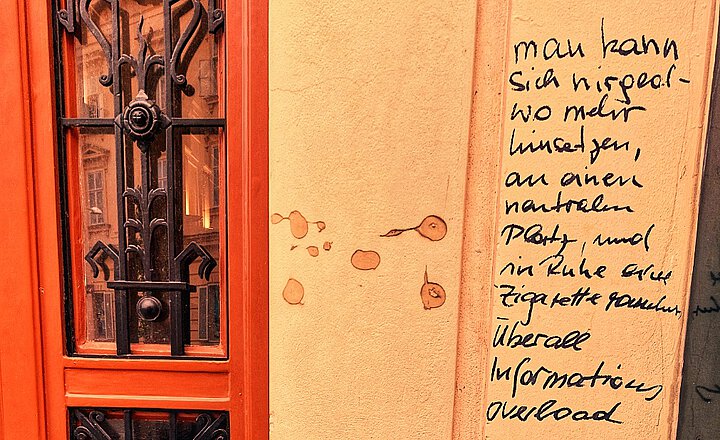 man kann
sich nirgend-
wo mehr
hinsetzen,
an einen
neutralen
Platz, und
in Ruhe eine
Zigarette rauchen
Überall
Informations
overload